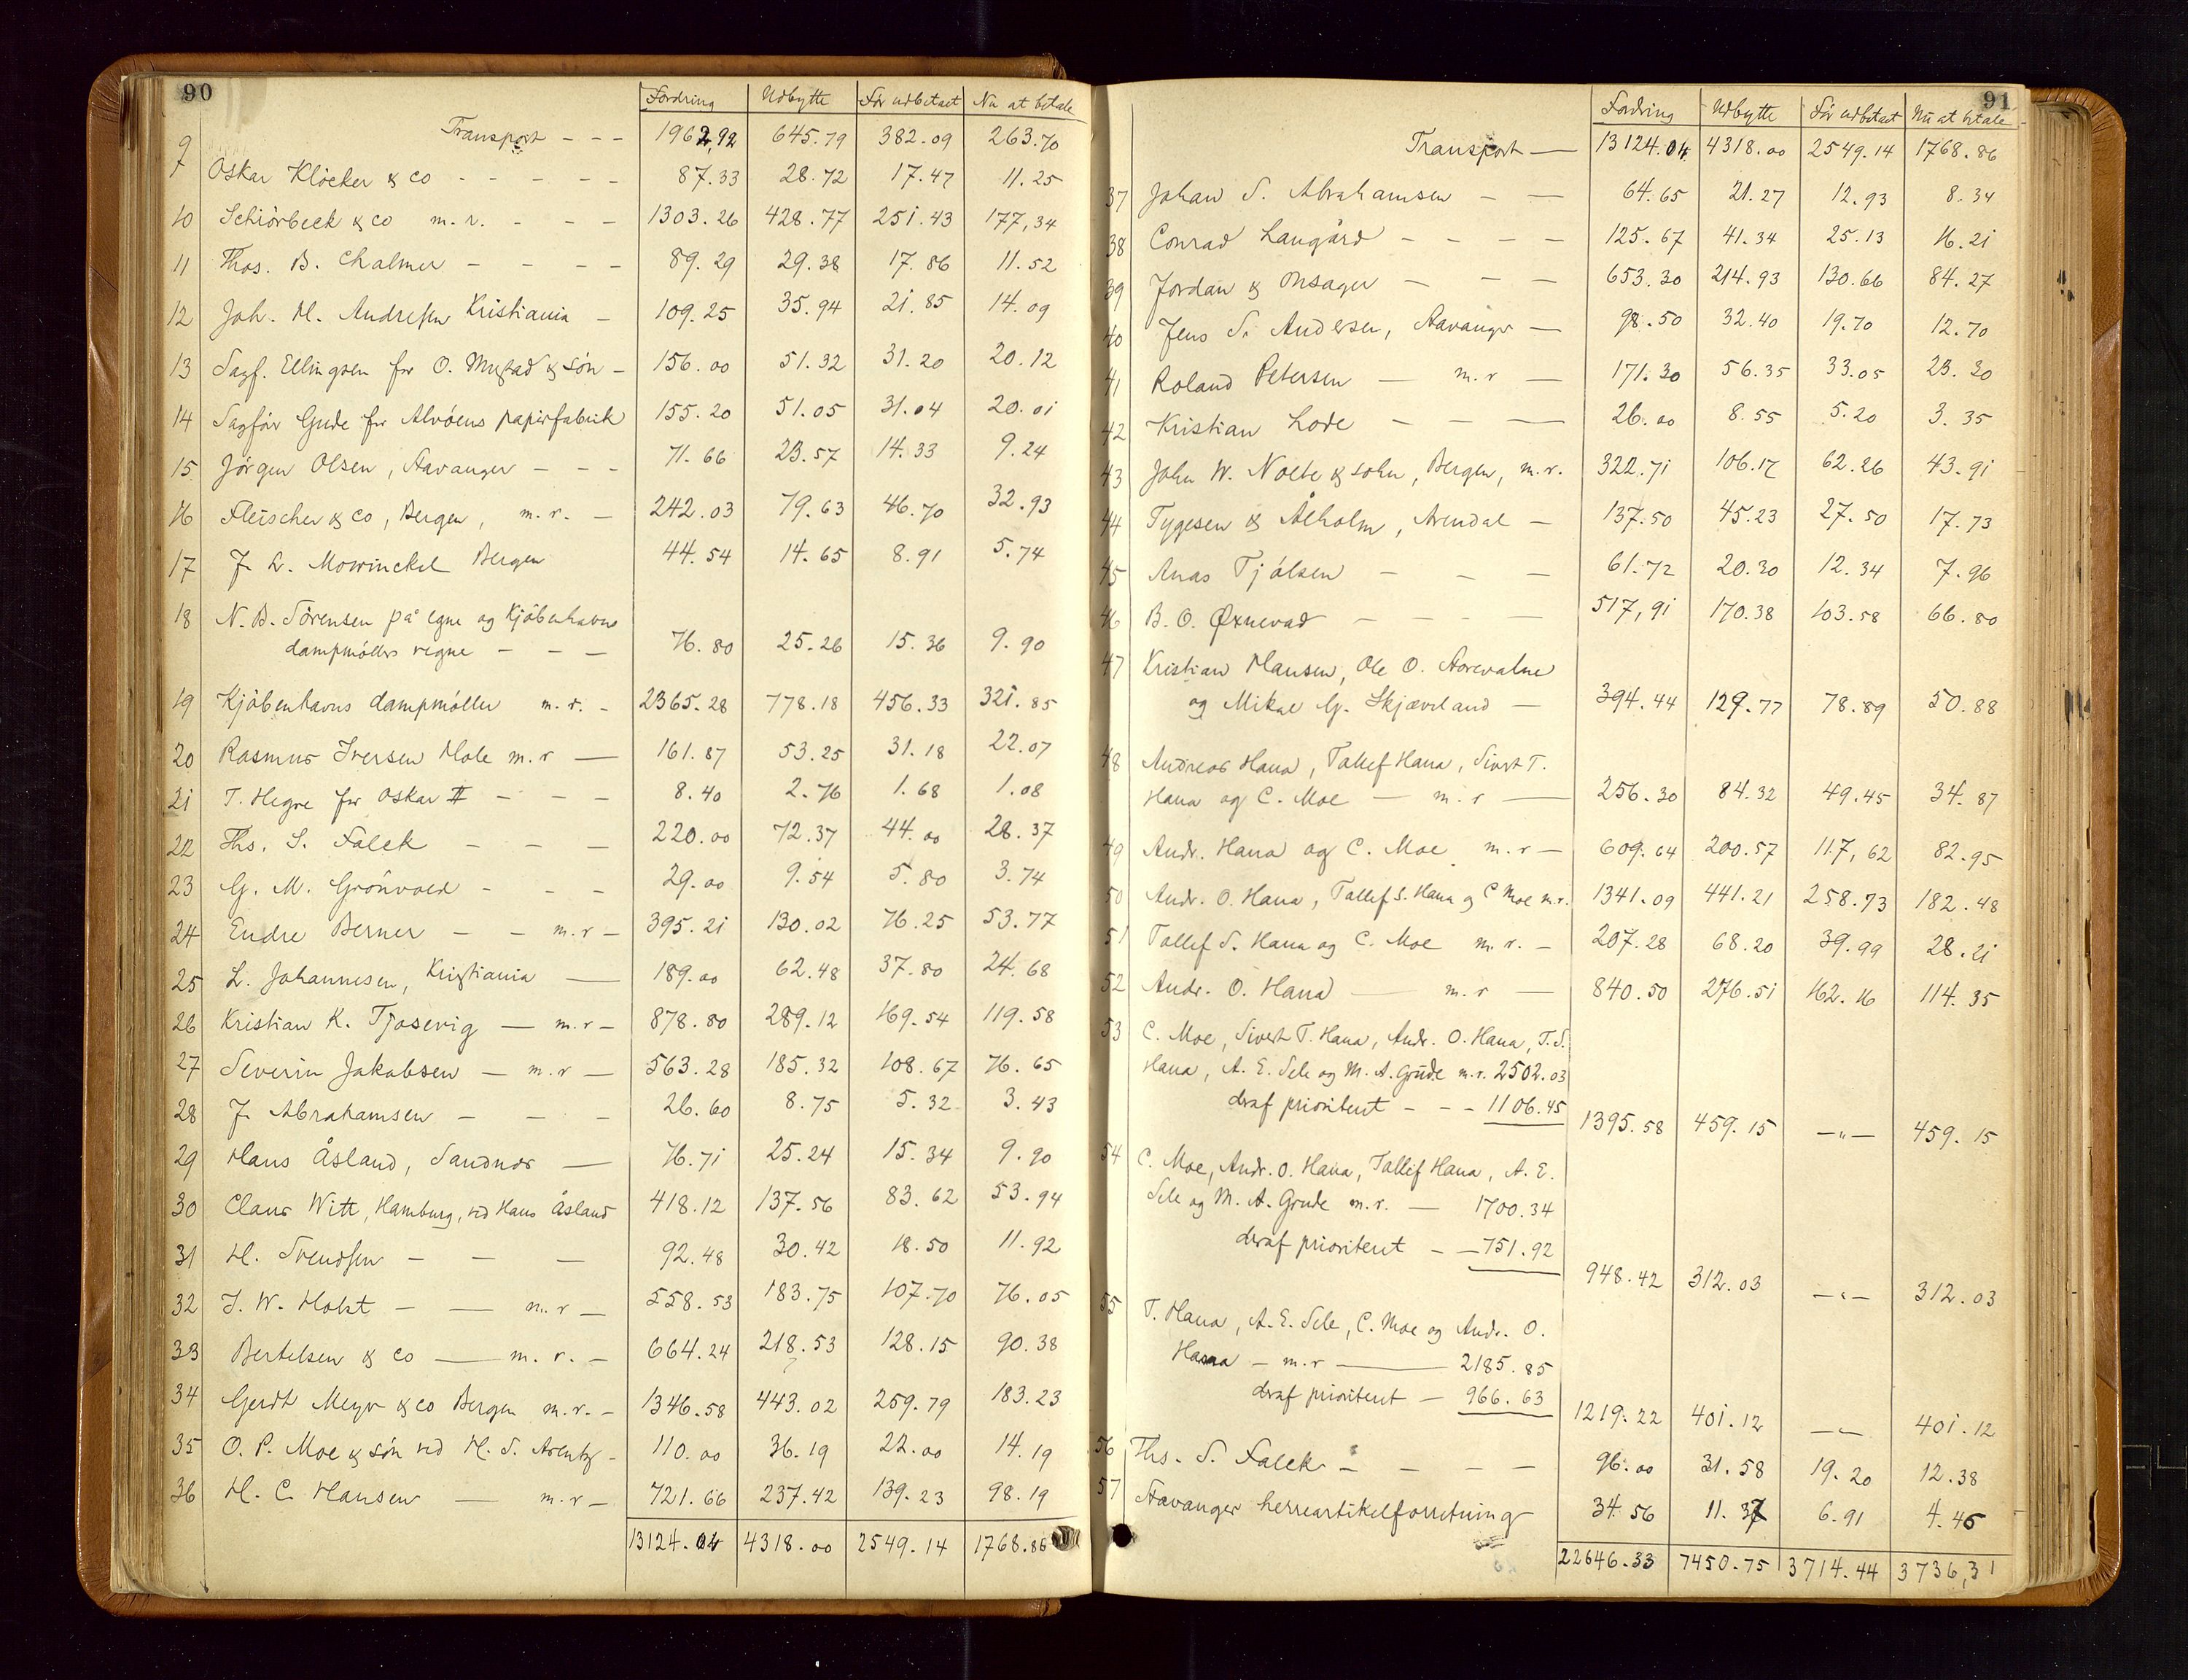 90
Fordring Udbytte Før udbetaet Nu at betale
Transport - - - 1962,92 645.79 382.09 263.70
9 Oskar Klöcker & co - - - - - 87.33 28.72 17.47 11.25
10 Schiörbeck & co m. r. - - - 1303.26 428.77 251.43 177,34
11 Thos. B. Chalmer - - - - 89.29 29.38 17.86 11.52
12 Joh. H. Andresen Kristiania - 109.25 35.94 21.85 14.09
13 Sagf. Ellingsen for O. Mustad & søn - 156.00 51.32 31.20 20.12
14 Sagfør Gude for Alvøens papirfabrik 155.20 51.05 31.04 20.01
15 Jørgen Olsen, Stavanger - - - 71.66 23.57 14.33 9.24
16 Fleischer & co, Bergen, m. r. - 242.03 79.63 46.70 32.93
17 J. L. Mowinckel Bergen 44.54 14.65 8.91 5.74
18 N. B. Sørensen på egne og Kjøbenhavns
dampmøllers regne - - - 76.80 25.26 15.36 9.90
19 Kjøbenhavns dampmøller m. r. - 2365.28 778.18 456.33 321.85
20 Rasmus Iversen Hole m. r — 161.87 53.25 31.18 22.07
21 T. Hegre for Oskar II - - - 8.40 2.76 1.68 1.08
22 Ths. S. Falck - - - 220.00 72.37 44.00 28.37
23 G. M. Grönvold - - - 29.00 9.54 5.80 3.74
24 Endre Berner - - m. r - 395.21 130.02 76.25 53.77
25 L. Johannesen, Kristiania — 189.00 62.48 37.80 24.68
26 Kristian K. Tjosevig — m. r - 878.80 289.12 169.54 119.58
27 Severin Jakobsen — m. r — 563.28 185.32 108.67 76.65
28 J. Abrahamsen - - - 26.60 8.75 5.32 3.43
29 Hans Åsland, Sandnes — 76.71 25.24 15.34 9.90
30 Claus Witt, Hamburg, ved Hans Åsland 418.12 137.56 83.62 53.94
31 H. Svendsen - - — 92.48 30.42 18.50 11.92
32 J. W. Holst - — m. r — 558.53 183.75 107.70 76.05
33 Bertelsen & co — m. r. - 664.24 218.53 128.15 90.38
34 Gerdt Meyer & co Bergen m. r. - 1346.58 443.02 259.79 183.23
35 O. P. Moe & søn ved H. S. Arentz - 110.00 36.19 22.00 14.19
36 H. C. Hansen — m. r - 721.66 237.42 139.23 98.19
13124.04 4318.00 2549.14 1768.86
91
Fordring Udbytte Før udbetaet Nu at betale
Transport — 13124.04 4318.00 2549.14 1768.86
37 Johan S. Abrahamsen - — 64.65 21.27 12.93 8.34
38 Conrad Langård - - - - 125.67 41.34 25.13 16.21
39 Jordan & Onsager - - - 653.30 214.93 130.66 84.27
40 Jens S. Andersen, Stavanger — 98.50 32.40 19.70 12.70
41 Roland Petersen — m. r — 171.30 56.35 33.05 23.30
42 Kristian Lode - - — 26.00 8.55 5.20 3.35
43 John W. Nolte & sohn, Bergen, m. r. 322.71 106.17 62.26 43.91
44 Tygesen & Åholm, Arendal - 137.50 45.23 27.50 17.73
45 Anas Tjølsen - - - 61.72 20.30 12.34 7.96
46 B. O. Øxnevad - - - — 517,91 170.38 103.58 66.80
47 Kristian Hansen, Ole O.
og Mikal G. Skjæveland — 394.44 129.77 78.89 50.88
48 Andreas Hana, Tollef Hana, Sivert T.
Hana og C. Moe — m. r — 256.30 84.32 49.45 34.87
49 Andr. Hana og C. Moe m. r — 609.64 200.57 117,62 82.95
50 Andr. O. Hana, Tollef S. Hana og C Moe m. r. 1341.09 441.21 258.73 182.48
51 Tollef S. Hana og C. Moe m. r. - 207.28 68.20 39.99 28.21
52 Andr. O. Hana — m. r — 840.50 276.51 162.16 114.35
53 C. Moe, Sivert T. Hana, Andr. O. Hana, T. S.
Hana, A. E. Sele og M. A. Grude m. r. 2502.03
deraf prioritert - - - 1106.45
1395.58 459.15 —„— 459.15
54 C. Moe, Andr. O. Hana, Tollef Hana, A. E.
Sele og M. A. Grude m. r. — 1700.34
deraf prioritert - — 751.92
948.42 312.03 —„— 312.03
55 T. Hana, A. E. Sele, C. Moe og Andr. O.
Hana - m. r — 2185.85
deraf prioritert — 966.63
1219.22 401.12 —„— 401.12
56 Ths. S. Falck - - - - 96.00 31.58 19.20 12.38
57 Stavanger herreartikelforretning 34.56 11.37 6.91 4.46
22646.33 7450.75 3714.44 3736,31